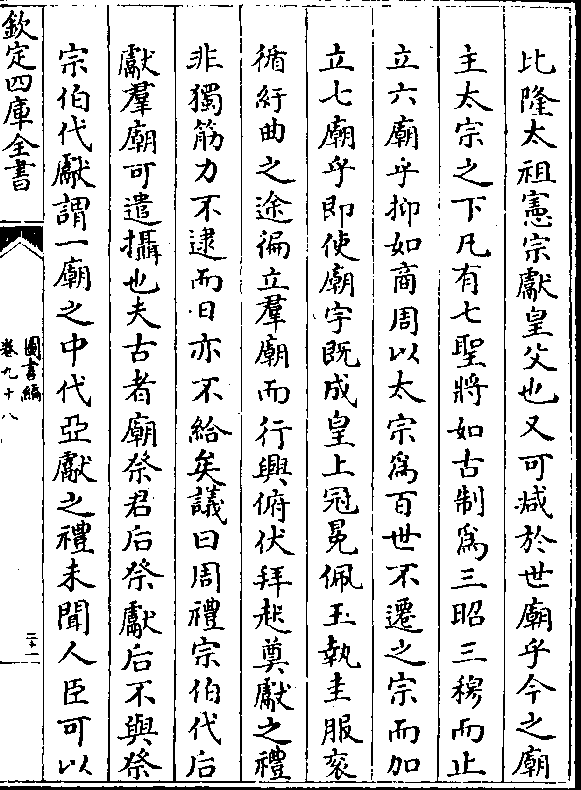 比隆太祖憲宗獻皇父也又可減於世廟乎今之廟
主太宗之下凡有七聖將如古制爲三昭三穆而止
立六廟乎抑如商周以太宗爲百世不遷之宗而加
立七廟乎即使廟宇既成皇上冠冕佩玉執圭服衮
循紆曲之途徧立羣廟而行興俯伏拜起奠獻之禮
非獨筋力不逮而日亦不給矣議曰周禮宗伯代后
獻羣廟可遣攝也夫古者廟祭君后祭獻后不與祭
宗伯代獻謂一廟之中代亞獻之禮未聞人臣可以
欽定四庫全書
圖書編
卷九十八
二十